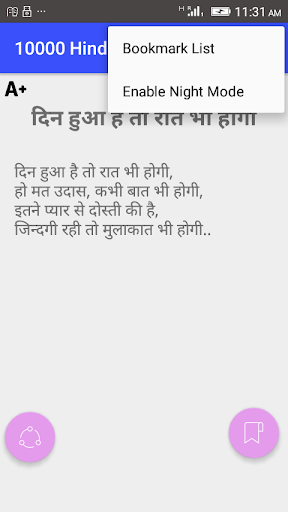 11:31 AM
10000 Hind
Bookmark List
Enable Night Mode
A+
दिन हुआ है तो रात भी होगी
दिन हुआ है तो रात भी होगी,
हो मत उदास, कभी बात भी होगी,
इतने प्यार से दोस्ती की है,
जिन्दगी रही तो मुलाकात भी होगी..